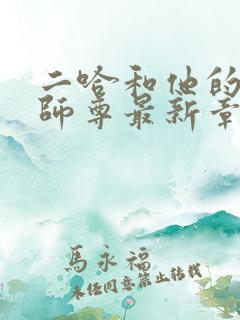 二哈和他的
師尊最新章
馬永福
未经同意禁止转载